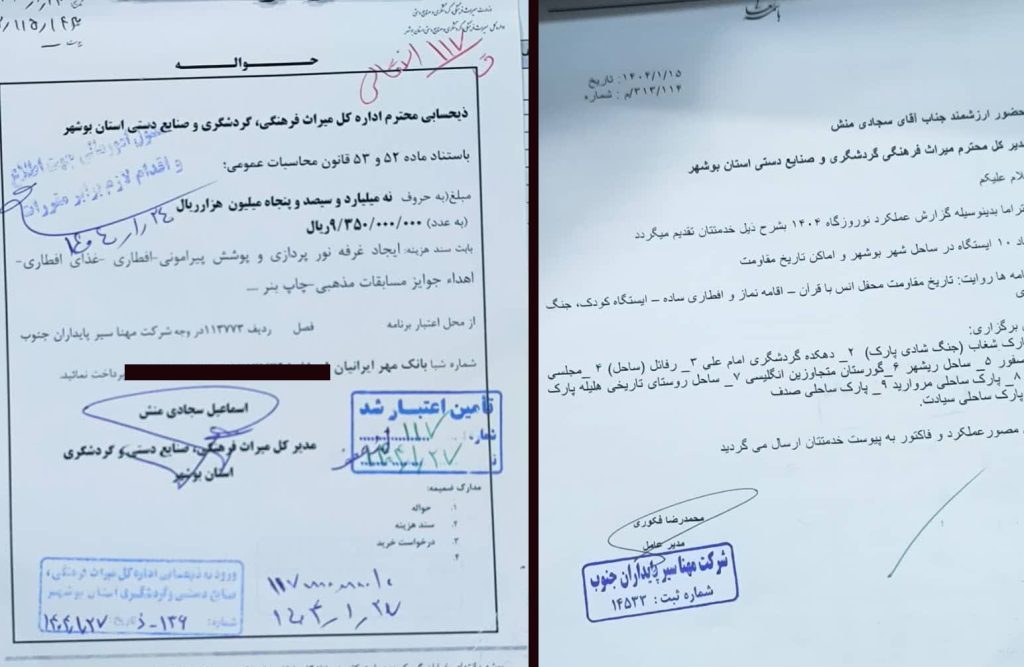 وزارت میراث فرهنگی، گردشگری و صنایع دستی
اداره کل میراث فرهنگی، گردشگری و صنایع دستی استان بوشهر
۱۱۷
حـــوالـــه
ذیحسابی محترم اداره کل میراث فرهنگی، گردشگری و صنایع دستی استان بوشهر
باستناد ماده ۵۲ و ۵۳ قانون محاسبات عمومی:
و اقدام لازم برابر مقررات
۱۴۰۴/۱/۲۴
مبلغ(به حروف نه میلیارد و سیصد و پنجاه میلیون هزارریال
(به عدد) ۹/۳۵۰/۰۰۰/۰۰۰ریال
بابت سند هزینه: ایجاد غرفه نور پردازی و پوشش پیرامونی-افطاری -غذای افطاری-
اهداء جوایز مسابقات مذهبی-چاپ بنر ....
از محل اعتبار برنامه فصل ردیف ۱۱۳۷۷۳در وجه شرکت مهنا سیر پایداران جنوب
شماره شبا بانک مهر ایرانیان پرداخت نمائید.
اسماعیل سجادی منش
مدیر کل میراث فرهنگی، صنایع دستی و گردشگری
استان بوشهر
تأمین اعتبار شد
شماره ۱۱۷
۱۴۰۴/۱/۲۷
مدارک ضمیمه:
۱. حواله
۲. سند هزینه
۳. درخواست خرید
۴.
ورود به ذیحسابی اداره کل میراث فرهنگی،
صنایع دستی و گردشگری استان بوشهر
شماره: ۱۳۶-ذ تاریخ ۱۴۰۴/۱/۲۷
تاریخ : ۱۴۰۴/۱/۱۵
شماره : ۳۱۳/۱۱۴/م
حضور ارزشمند جناب آقای سجادی منش
مدیر کل محترم میراث فرهنگی گردشگری و صنایع دستی استان بوشهر
علیکم
بدینوسیله گزارش عملکرد نوروزگاه ۱۴۰۴ بشرح ذیل خدمتتان تقدیم میگردد
۱۰ ایستگاه در ساحل شهر بوشهر و اماکن تاریخ مقاومت
روایت: تاریخ مقاومت محفل انس با قرآن – اقامه نماز و افطاری ساده – ایستگاه کودک، جنگ
برگزاری:
پارک شغاب (جنگ شادی پارک) ۲_ دهکده گردشگری امام علی ۳_ رفائل (ساحل) ۴_ مجلسی
۵_ ساحل ریشهر ۶_گورستان متجاوزین انگلیسی ۷_ ساحل روستای تاریخی هلیله پارک
۸_ پارک ساحلی مروارید ۹_ پارک ساحلی صدف
پارک ساحلی سیادت.
مصورعملکرد و فاکتور به پیوست خدمتتان ارسال می گردید
محمدرضا فکوری
مدیر عامل
شرکت مهنا سیر پایداران جنوب
شماره ثبت : ۱۴۵۳۳